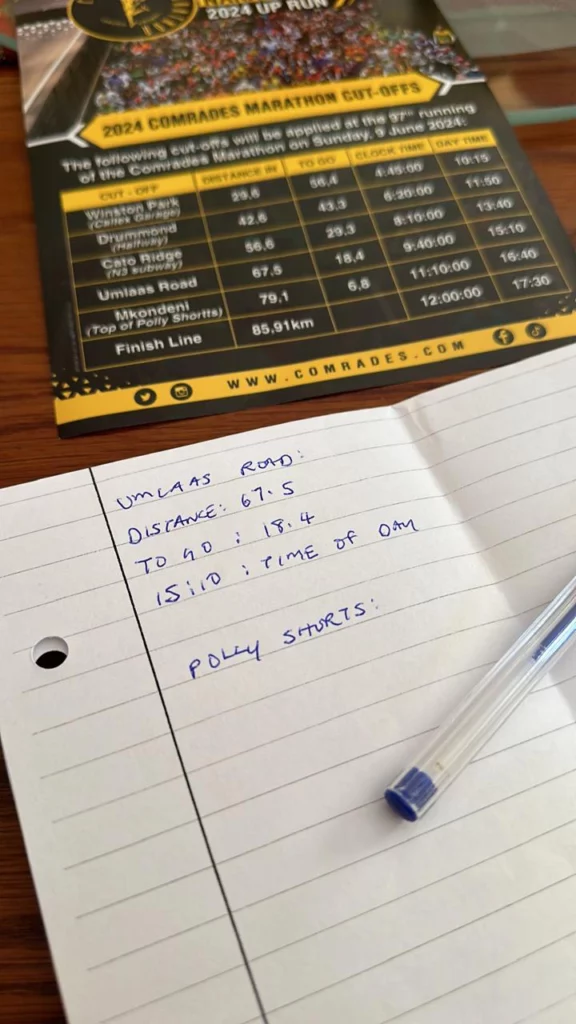 2024 UP RUN
2024 COMRADES MARATHON CUT-OFFS
The following cut-offs will be applied at the 97th running
of the Comrades Marathon on Sunday, 9 June 2024:
CUT - OFF DISTANCE IN TO GO CLOCK TIME DAY TIME
Winston Park 29,5 56,4 4:45:00 10:15
(Caltex Garage)
Drummond 42,6 43,3 6:20:00 11:50
(Halfway)
Cato Ridge 56,6 29,3 8:10:00 13:40
(N3 subway)
Umlaas Road 67,5 18,4 9:40:00 15:10
Mkondeni 79,1 6,8 11:10:00 16:40
(Top of Polly Shortts)
Finish Line 85,91km 12:00:00 17:30
WWW.COMRADES.COM
UMLAAS ROAD:
DISTANCE: 67.5
TO GO : 18.4
15:10 : TIME OF DAY
POLLY SHORTS: